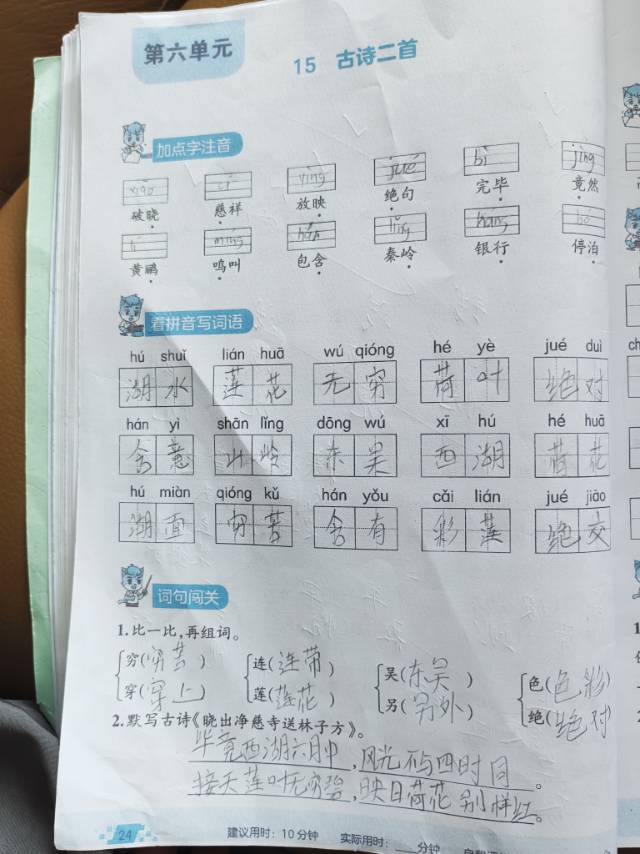 第六单元
15 古诗二首
加点字注音
xiǎo cí yìng jué bì jìng
破晓 慈祥 放映 绝句 完毕 竟然
míng hán lǐng háng bó
黄鹂 鸣叫 包含 秦岭 银行 停泊
看拼音写词语
hú shuǐ lián huā wú qióng hé yè jué duì
湖水 莲花 无穷 荷叶 绝对
hán yì shān lǐng dōng wú xī hú hé huā
含意 山岭 东吴 西湖 荷花
hú miàn qióng kǔ hán yǒu cǎi lián jué jiāo
湖面 穷苦 含有 彩莲 绝交
词句闯关
1.比一比,再组词。
穷(穷苦) 连(连带) 吴(东吴) 色(色彩)
穿(穿上) 莲(莲花) 另(另外) 绝(绝对)
2.默写古诗《晓出净慈寺送林子方》。
毕竟西湖六月中,风光不与四时同。
接天莲叶无穷碧,映日荷花别样红。
24 建议用时:10分钟 实际用时: 分钟